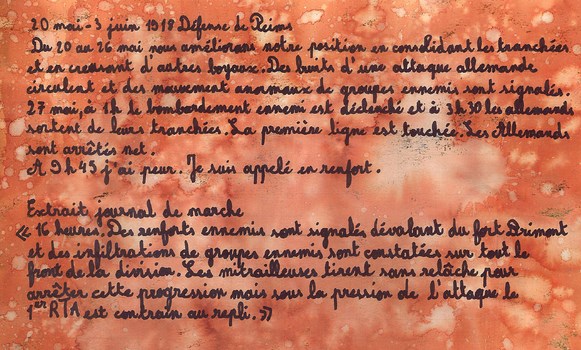 20 mai - 3 juin 1918 Défense de Reims
Du 20 au 26 mai nous améliorons notre position en consolidant les tranchées
et en creusant d'autres boyaux. Des bruits d'une attaque allemande
circulent et des mouvement anormaux de groupes ennemis sont signalés.
27 mai, à 1h le bombardement ennemi est déclenché et à 3h30 les allemands
sortent de leurs tranchées. La première ligne est touchée. Les Allemands
sont arrêtés net.
A 9h45 j'ai peur. Je suis appelé en renfort.
Extrait journal de marche
« 16 heures. Des renforts ennemis sont signalés dévalant du fort Brimont
et des infiltrations de groupes ennemis sont constatées sur tout le
front de la division. Les mitrailleuses tirent sans relâche pour
arrêter cette progression mais sous la pression de l'attaque le
1er RTA est contrain au repli. »